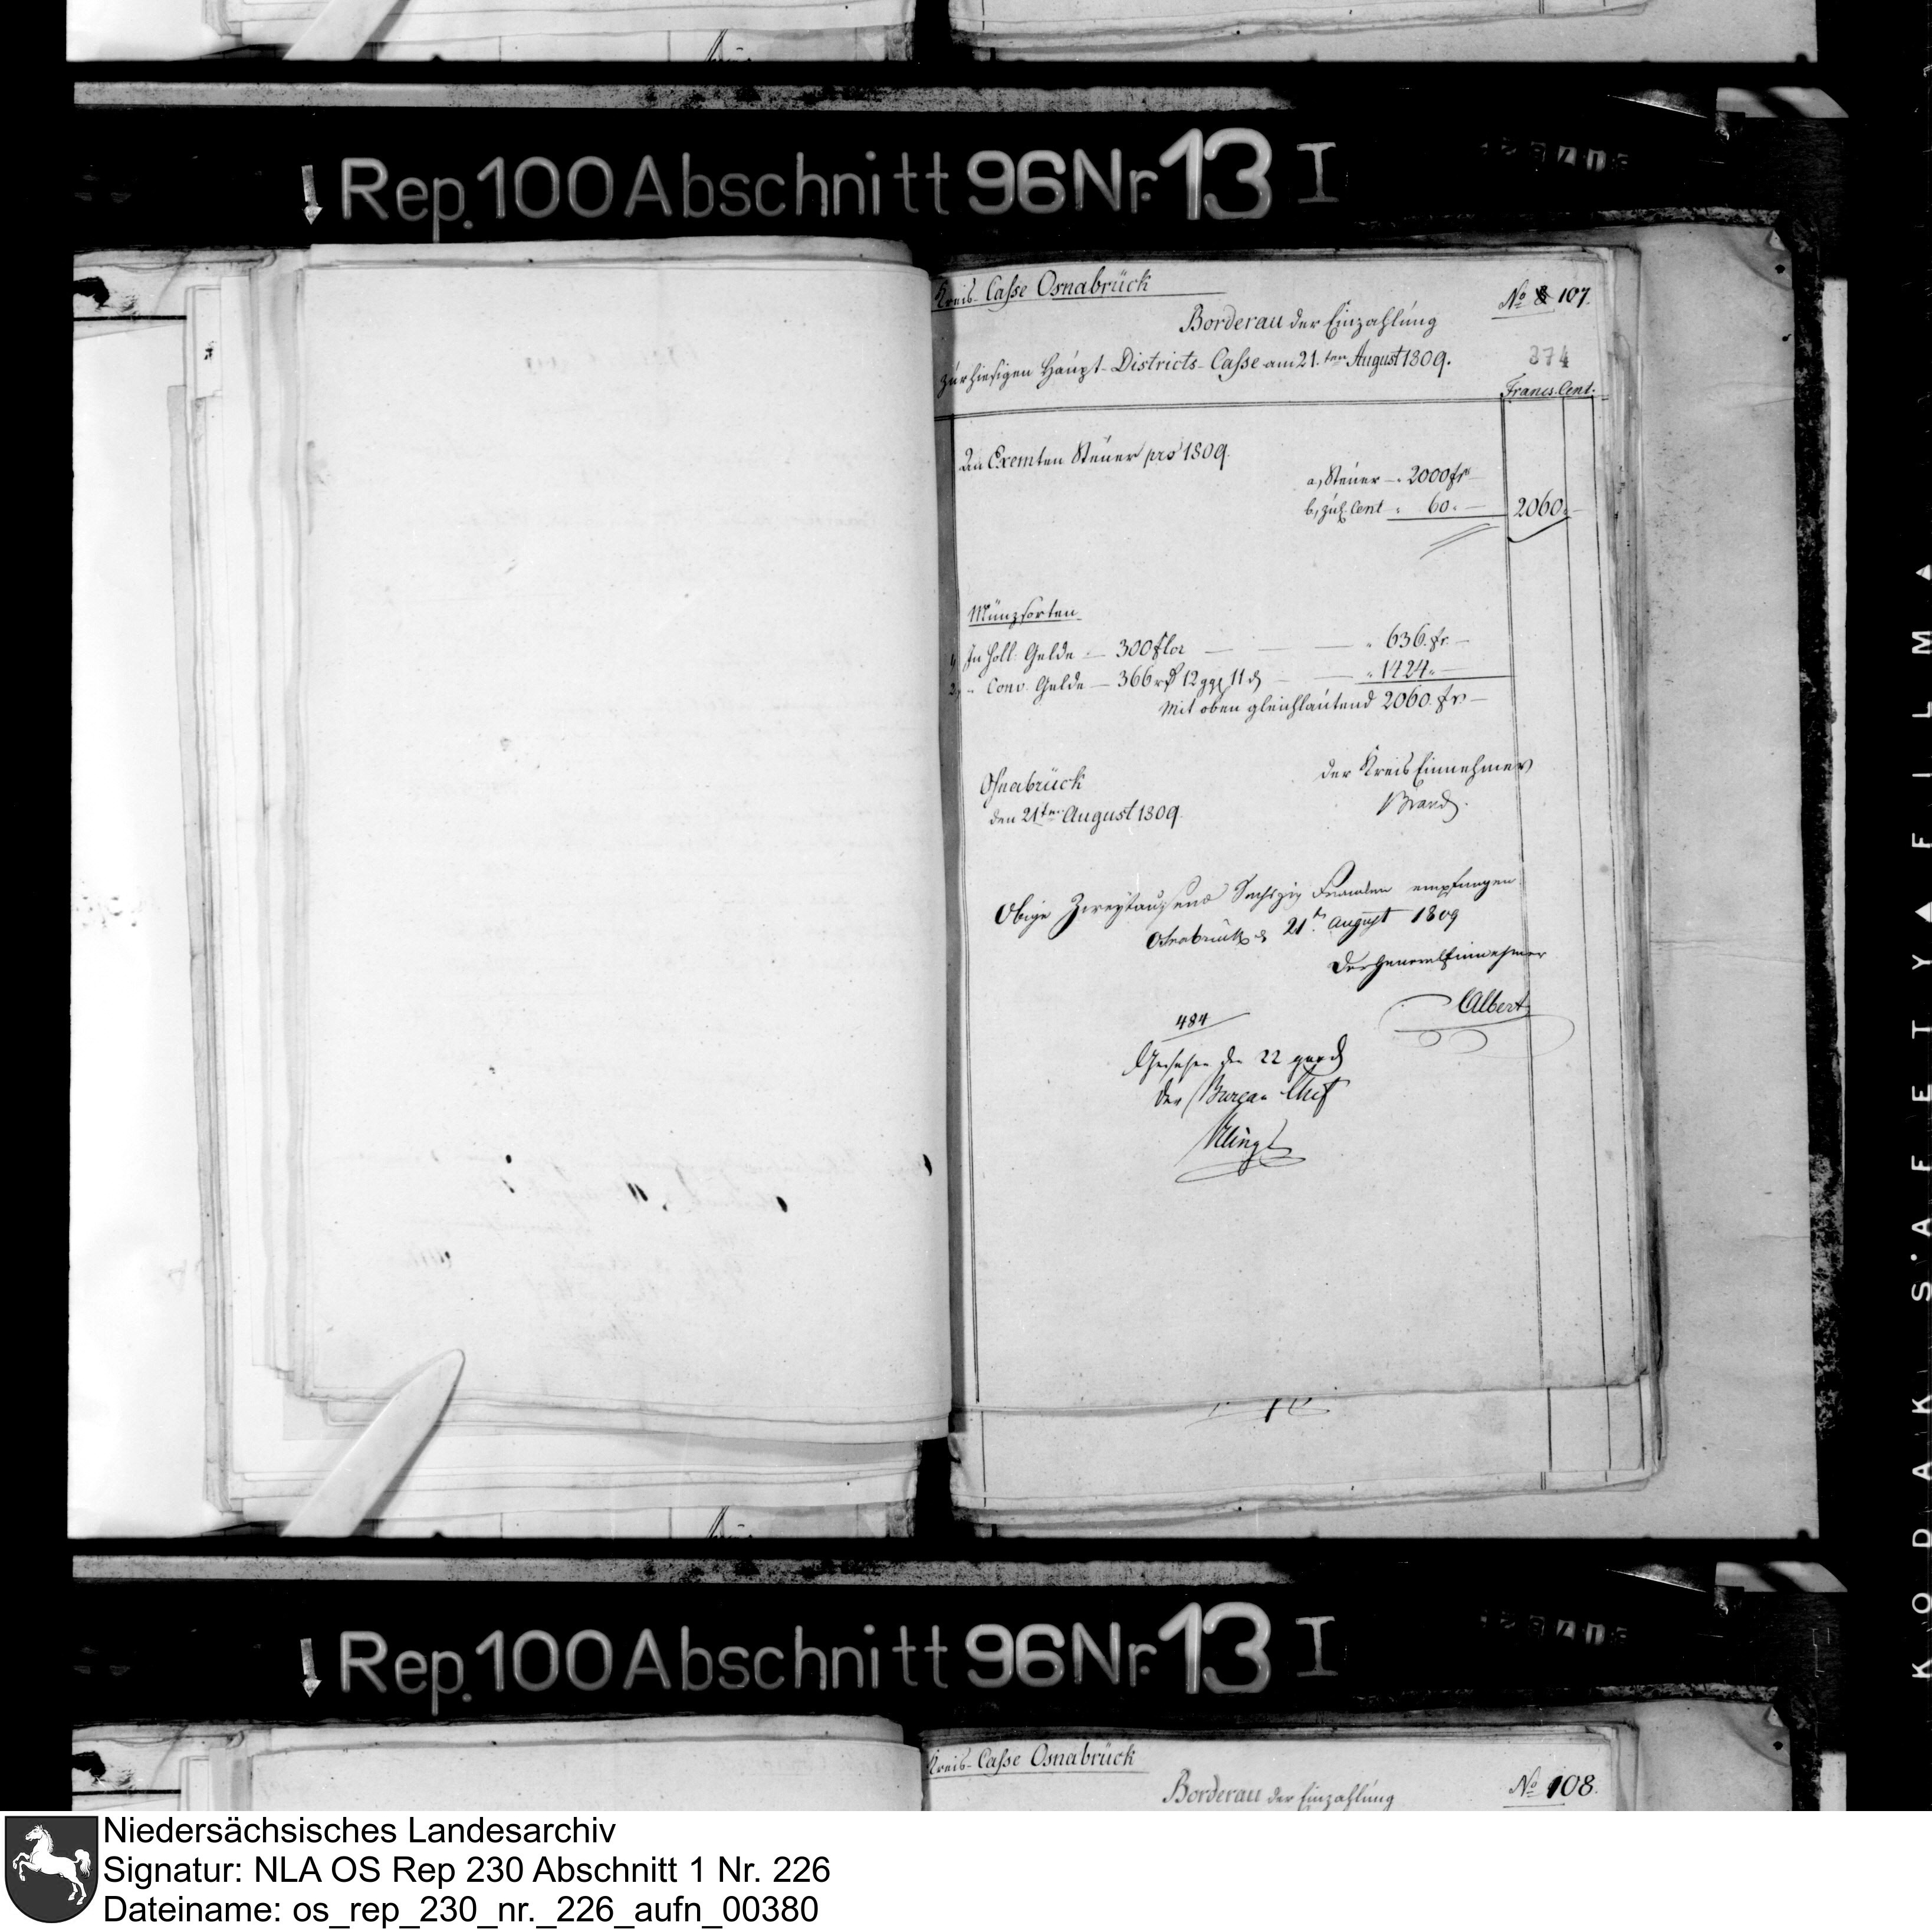 Rep. 100 Abschnitt 96 Nr. 13 I
Kreis-Casse Osnabrück
No 107.
Borderau der Einzahlung
zur hiesigen Haupt-Districts-Casse am 21.ten August 1809.
374
Francs. Cent.
An Exemten Steuer pro 1809.
a, Steuer — 2000 fr —
b, zus. Cent " 60. — 2060. —
Münzsorten
1, In holl. Gelde — 300 flor — " 636. fr. —
2, " Conv. Gelde — 366 rℓ 12 ggl 11 d — " 1424. —
Mit oben gleichlautend 2060. fr. —
Osnabrück
den 21ten August 1809.
der Kreis Einnehmer
Brand.
Obige Zweytausend Sechszig Franken empfangen
Osnabrück d 21t August 1809
Der General Einnehmer
Albert
484
Gesehen den 22
der Bureau Chef
Rep. 100 Abschnitt 96 Nr. 13 I
Kreis-Casse Osnabrück
No 108.
Borderau der Einzahlung
KODAK SAFETY FILM
Niedersächsisches Landesarchiv
Signatur: NLA OS Rep 230 Abschnitt 1 Nr. 226
Dateiname: os_rep_230_nr._226_aufn_00380